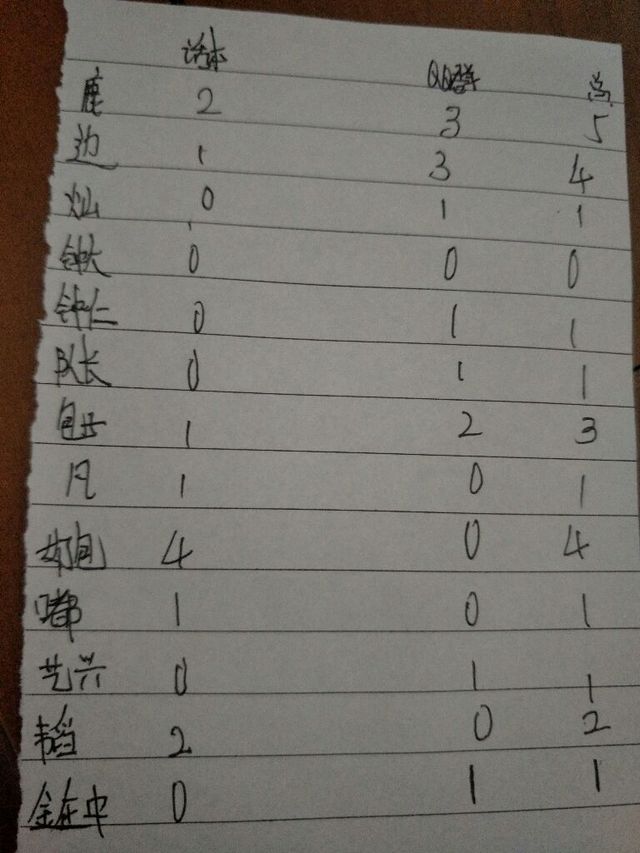 话本 QQ群 总
鹿 2 3 5
边 1 3 4
灿 0 1 1
钟大 0 0 0
钟仁 0 1 1
队长 0 1 1
1 2 3
凡 1 0 1
包 4 0 4
嘟 1 0 1
艺兴 0 1 1
韬 2 0 2
金在中 0 1 1